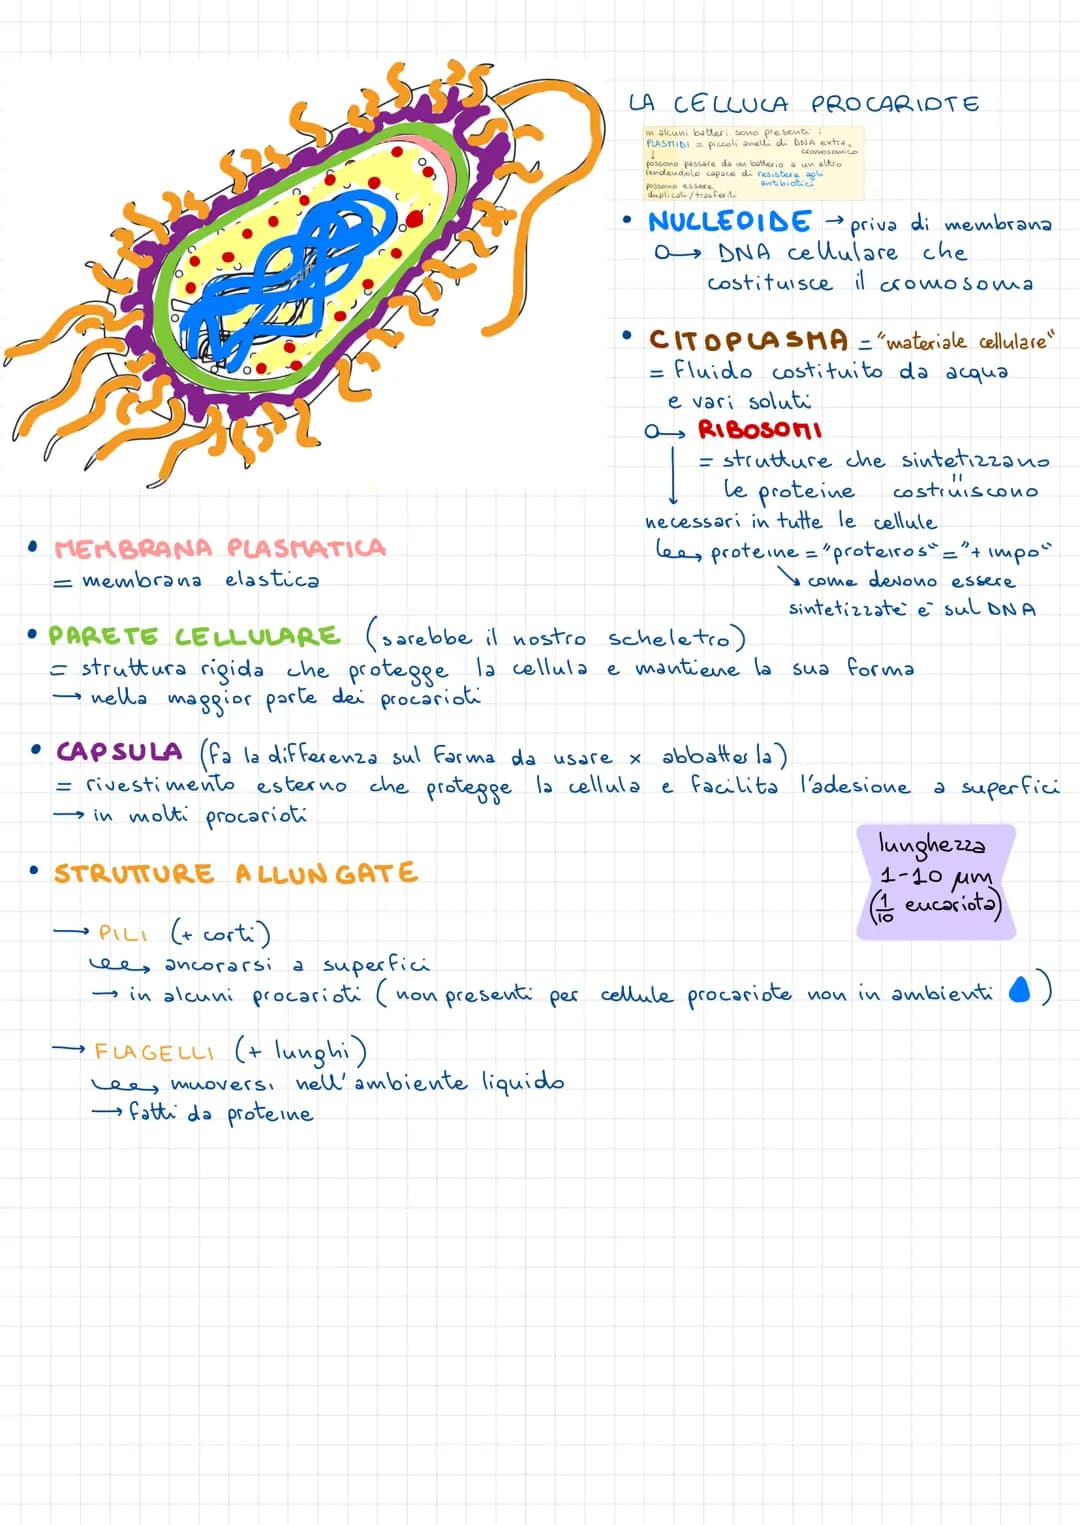 LA CELLULA PROCARIOTE
in alcuni batteri sono presenti i
PLASMIDI = piccoli anelli di DNA extra
cromosomico
↓
possono passare da un batterio a un altro
rendendolo capace di resistere agli
antibiotici
possono essere
duplicati/trasferiti
• NUCLEOIDE → priva di membrana
→ DNA cellulare che
costituisce il cromosoma
• CITOPLASMA = "materiale cellulare"
= fluido costituito da acqua
e vari soluti
→ RIBOSOMI
= strutture che sintetizzano
le proteine costruiscono
necessari in tutte le cellule
proteine = "proteiros" = "+ impo"
come devono essere
sintetizzate è sul DNA
• MEMBRANA PLASMATICA
= membrana elastica
• PARETE CELLULARE (sarebbe il nostro scheletro)
= struttura rigida che protegge la cellula e mantiene la sua forma
→ nella maggior parte dei procarioti
• CAPSULA (fa la differenza sul farma da usare x abbatterla)
= rivestimento esterno che protegge la cellula e facilita l'adesione a superfici
→ in molti procarioti
lunghezza
1-10 μm
(1/10 eucariota)
• STRUTTURE ALLUNGATE
→ PILI (+ corti)
→ ancorarsi a superfici
→ in alcuni procarioti (non presenti per cellule procariote non in ambienti 💧)
→ FLAGELLI (+ lunghi)
→ muoversi nell'ambiente liquido
→ fatti da proteine